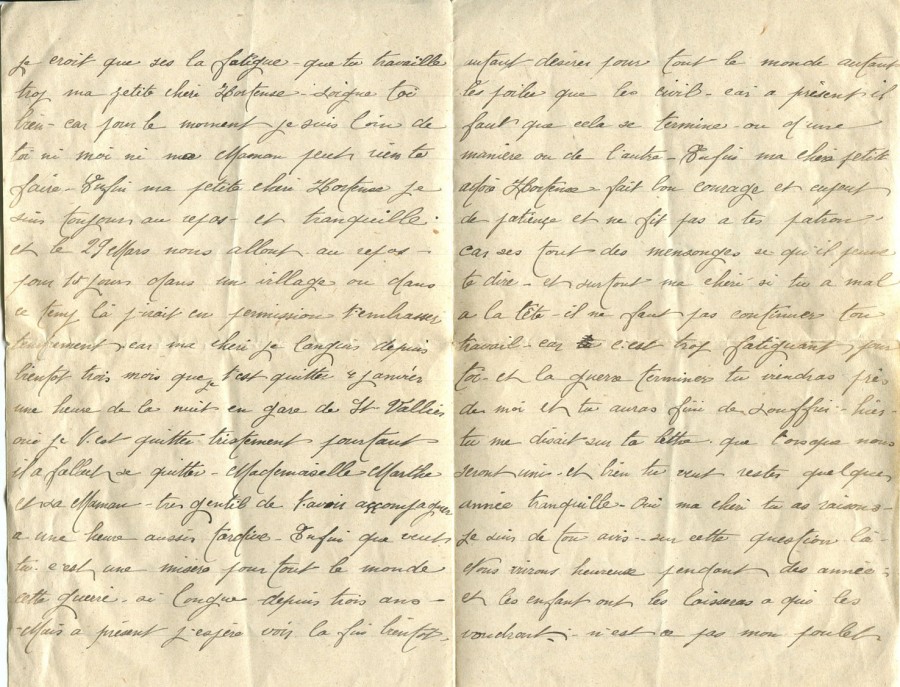 Je croit que ses la fatigue - que tu travaille
trop ma petite cheri Hortense - Soigne toi
bien - car pour le moment je suis loin de
toi ni moi ni ma Maman peut rien te
faire - Enfin ma petite cheri Hortense je
suis toujours au repos - et tranquille.
et le 29 Mars nous allont au repos -
pour 15 jours dans un village ou dans
ce temp là j'irait en permission t'embrasser
tendrement car ma cheri je languis depuis
bientot trois mois que je t'est quitter 4 janvier
une heure de la nuit en gare de St Vallier
oui je t'est quitter tristement pourtant
il a fallut se quitter - Mademaselle Marthe
et sa Maman - tres gentil de t'avoir accompagner
a une heure aussi tardive - Enfin que veut
tu c'est une misère pour tout le monde
cette guerre - si longue depuis trois ans -
- Mais a présent j'espère voir la fin bientot -
surtout désirer pour tout le monde autant
les poilus que les civil - car a présent il
faut que cela se termine - ou d'une
manière ou de l'autre - Enfin ma chère petite
Hortense - fait bon courage et
de patience et ne fit pas a tes patron
car ses tout des mensonges se qu'il peuve
te dire - et surtout ma cheri si tu a mal
a la tête - il ne faut pas continuer ton
travail - car c'est trop fatiguant pour
toi - et la guerre terminer tu viendras près
de moi et tu auras fini de souffrir - hier
tu me disait sur ta lettre que lorsque nous
seront unis - et bien tu veut rester quelque
année tranquille - Oui ma cheri tu as raisons -
Je suis de ton avis - sur cette question là -
Nous vivrons heureuse pendant des année -
et les enfant ont les laisseras a qui les
voudront - n'est ce pas mon poulet